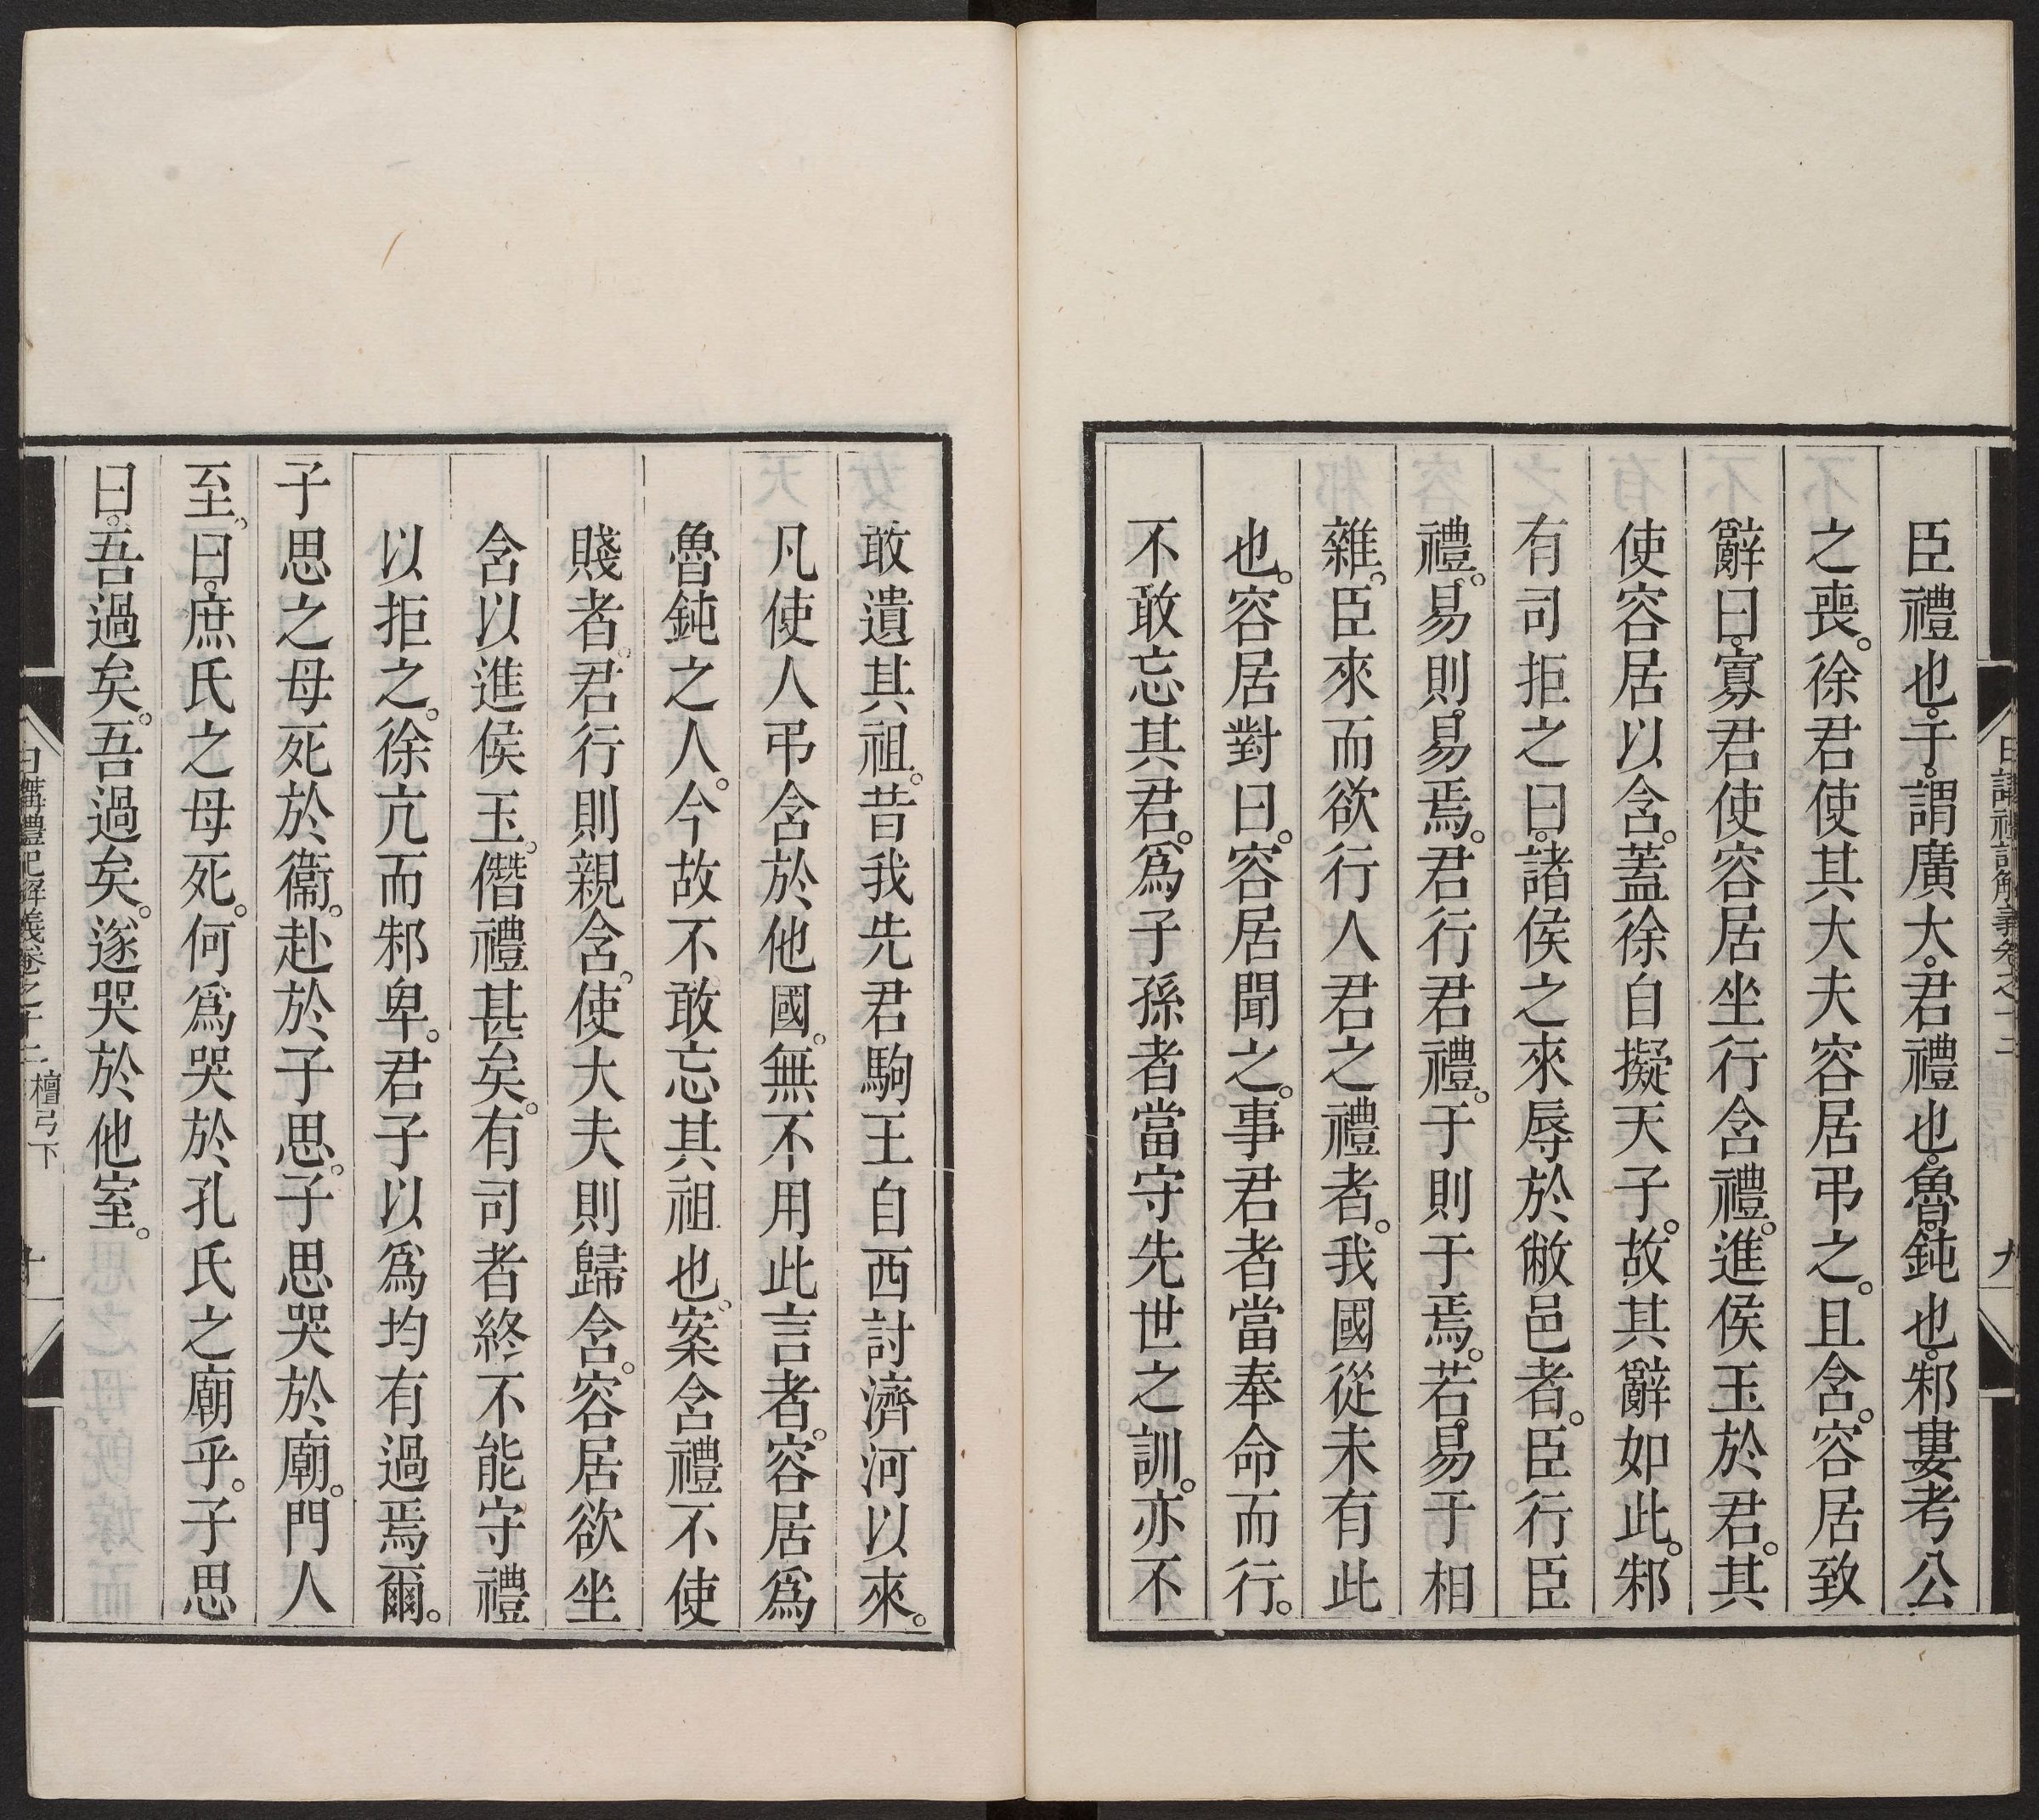 臣禮也。于。謂廣大。君禮也。魯。鈍也。邾婁考公
之喪。徐君使其大夫容居弔之。且含。容居致
辭曰。寡君使容居坐行含禮。進侯玉於君。其
使容居以含。蓋徐自擬天子。故其辭如此。邾
有司拒之曰。諸侯之來辱於敝邑者。臣行臣
禮。易則。易焉。君行君禮。于則于焉。若。易于相
雜。臣來而欲行人君之禮者。我國從未有此
也。容居對曰。容居聞之。事君者當奉命而行。
不敢忘其君。為子孫者當守先世之訓。亦不
日講禮記解義卷之十二
九
敢遺其祖。昔我先君駒王自西討濟河以來。
凡使人弔含於他國。無不用此言者。容居為
魯鈍之人。今故不敢忘其祖也。案含禮不使
賤者。君行則親含。使大夫則歸含。容居欲坐
含以進侯玉。僭禮甚矣。有司者終不能守禮
以拒之。徐亢而邾卑。君子以為均有過焉爾。
子思之母死於衞。赴於子思。子思哭於廟。門人
至。曰。庶氏之母死。何為哭於孔氏之廟乎。子思
曰。吾過矣。吾過矣。遂哭於他室。
日講禮記解義卷之十二 檀弓下
十